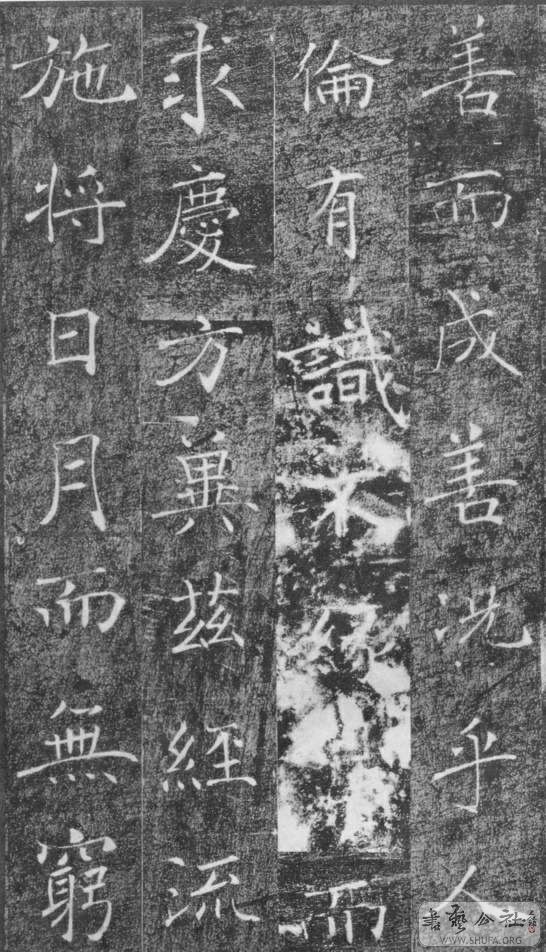 善而成善況乎人
倫有識不緣而
求慶方冀茲經流
施将日月而無窮
書藝公社
WWW.SHUFA.ORG